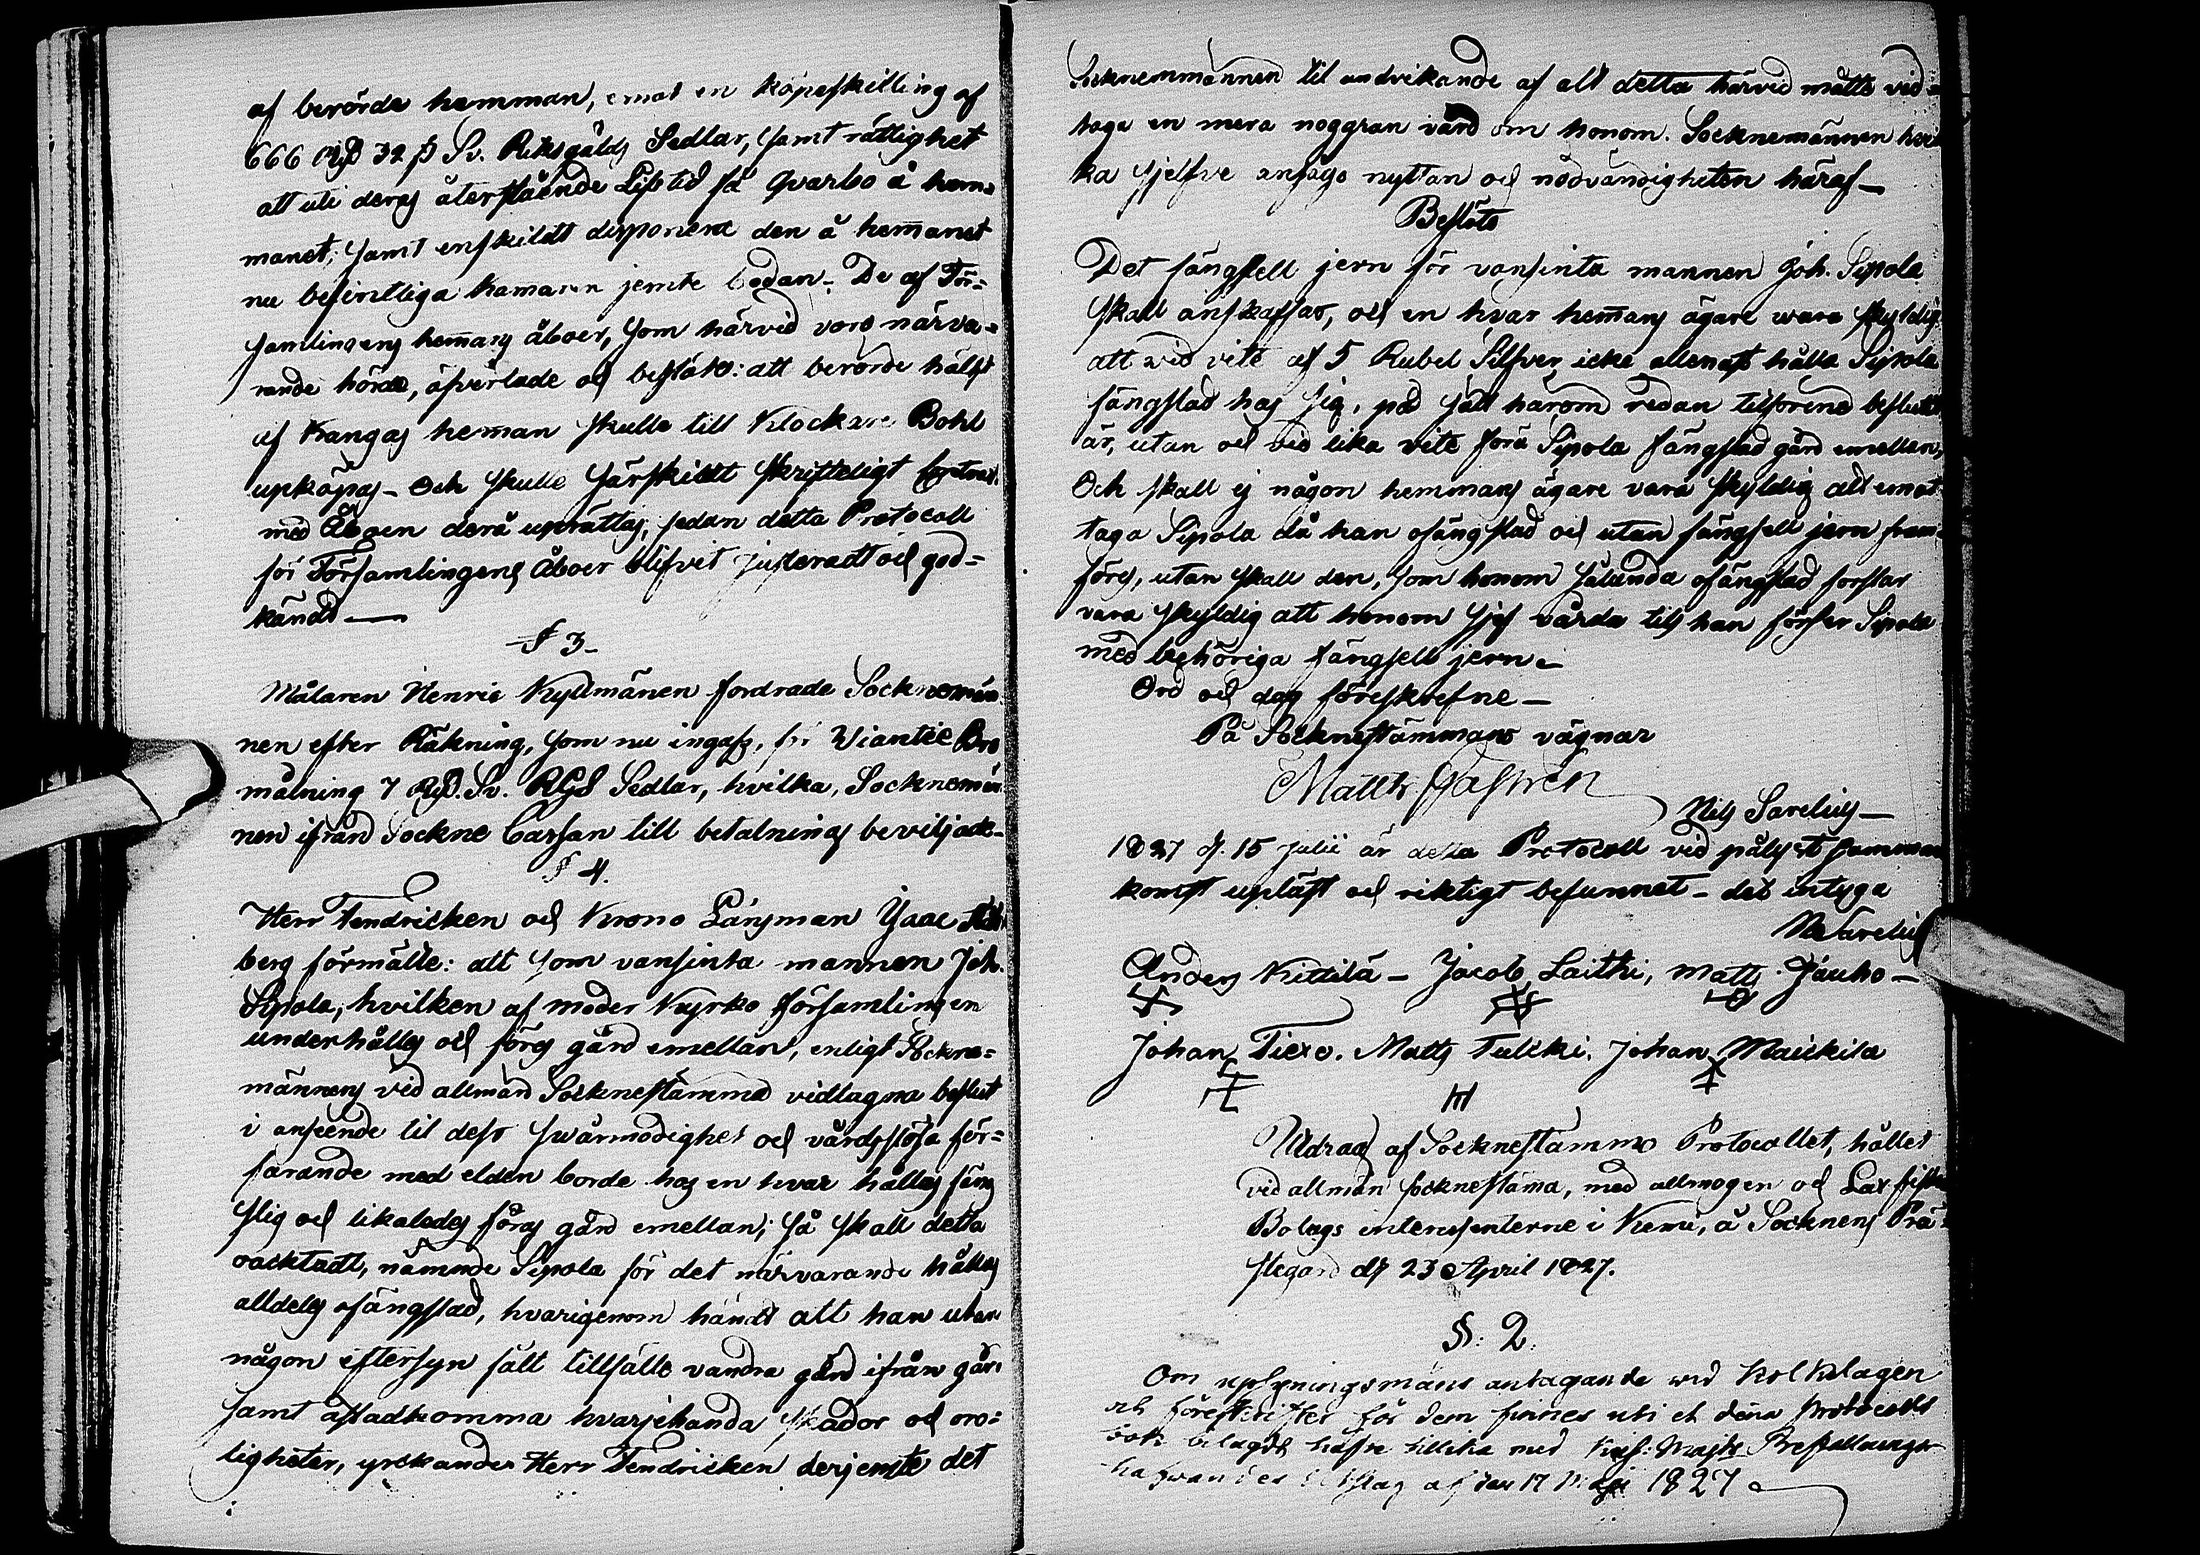 af berörde hemman, emot en köpeskilling af
666 Rd 32 ß Sv. Riksgälds Sedlar, samt rättighet
att uti deras återstående Lifstid få qvarbo å hem=
manet, samt enskildt disponera den å hemanet
nu befintliga kamaren jemte bodan. De af För=
samlingens hemans åboer, som härvid voro närva=
rande hörde, öfverlade och beslöto: att berörde hälft
af Kangas heman skulle till Klockare Bohl
upköpas – Och skulle särskildt skrifteligt Contract
med Åboen derå uprättas, sedan detta Protocoll
för Församlingens Åboer blifvit justeradt och god=
kändt —
§ 3
Målaren Henric Kyllmänen fordrade Socknemän
nen efter Räkning, som nu ingafs, för Wiantie Bro
målning 7 Rd. Sv. RGS Sedlar, hvilka, Socknemän
nen ifrån Sockne Cassan till betalnings beviljade
§ 4.
Herr Fendricken och Krono Länsman Isaac
berg förmälte: att som vansinta mannen Joh.
Sipola, hvilken af moder Kyrko församlingen
underhålles och föres gård emellan, enligt Sockne=
männens vid allmän Socknestämma vidtagna beslut
i anseende til dess svårmodighet och vårdslösa för=
farande med elden borde hos en hvar hållas fäng
slig och likaledes föras gård emellan; så skall detta
oacktadt, nämnde Sipola för det närvarande hållas
alldeles ofängslad, hvarigenom händt att han utan
någon eftersyn fått tillfälle vandra gård ifrån gård
samt åstadkomma hvarjehanda skador och oro=
ligheter, yrckandes Herr Fendricken derjemte det
Socknemännen til undvikande af allt detta härvid måtte vid=
taga en mera noggran vård om honom. Socknemännen hvil
ka sjelfve ansågo nyttan och nödvändigheten häraf —
Beslöts
Det fängsell jern för vansinta mannen Joh. Sipola
skall anskaffas, och en hvar hemans ägare wara skyldig
att vid vite af 5 Rubel Silfver icke allenast hålla Sipola
fängslad hos sig, på sätt härom redan tilförene beslutit
är, utan och vid lika vite föra Sipola fängslad gård emellan,
Och skall ej någon hemmans ägare vara skyldig att emot
taga Sipola då han ofängslad och utan fängsell jern fram=
föres, utan skall den, som honom sålunda ofängslad forslar
vara skyldig att honom sjelf vårda tils han förser Sipola
med behöriga fängsell jern —
Ord och dag föreskrefne —
På Socknestämmans vägnar
Matth. Castrén
Nils Sarelius —
1827 d. 15 Julii är detta Protocoll vid pålyst samman
komst upläst och riktigt befunnet – det intyga
N Sarelius
Anders Kittilä – Jacob Laithi, Matts Jauho –
Johan Tiero. Matts Tulcki. Johan Maickila
Utdrag af Sockenstämmo Protocollet, hållet
vid allmän sockenstäma, med allmogen och Lax fiske
Bolags interessenterne i Kemi, å Socknens Prä=
stegård d. 23 April 1827.
§: 2.
Om uplysningsmäns antagande wid Kolkilagen
och föreskrifter för dem finnes uti et denna Protocolls
bok bilagdt häfte tillika med Kejs: Majts Befallnings
hafwandes Utslag af den 17 Maji 1827